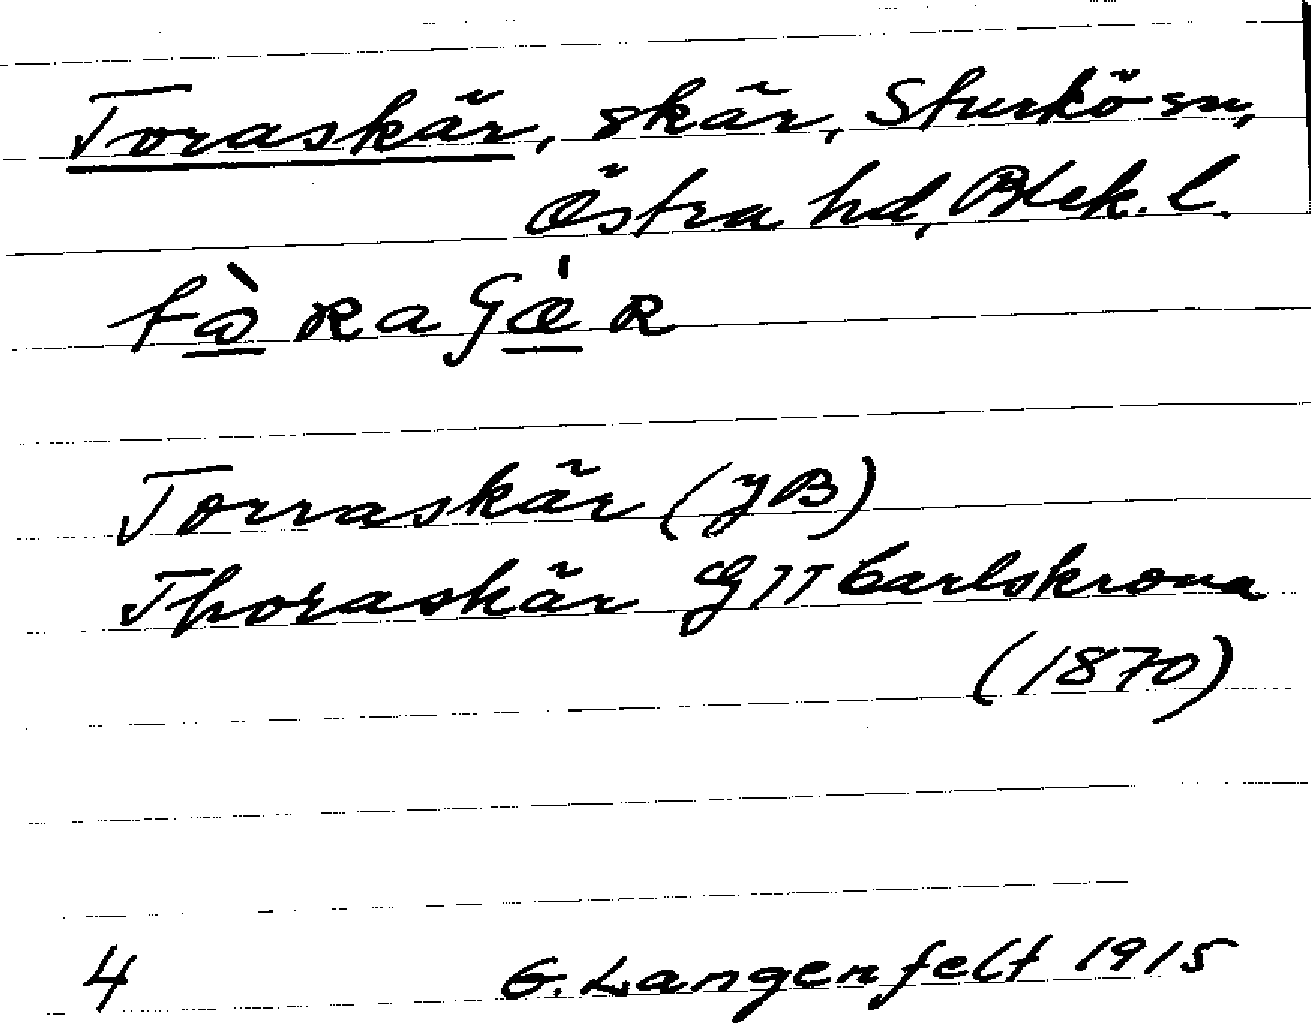 Toraskär, skär, Sturkö sn,
Östra hd, Blek. l.
Torraskär (JB)
Thoraskär GK Carlskrona
(1870)
4 G. Langenfelt 1915